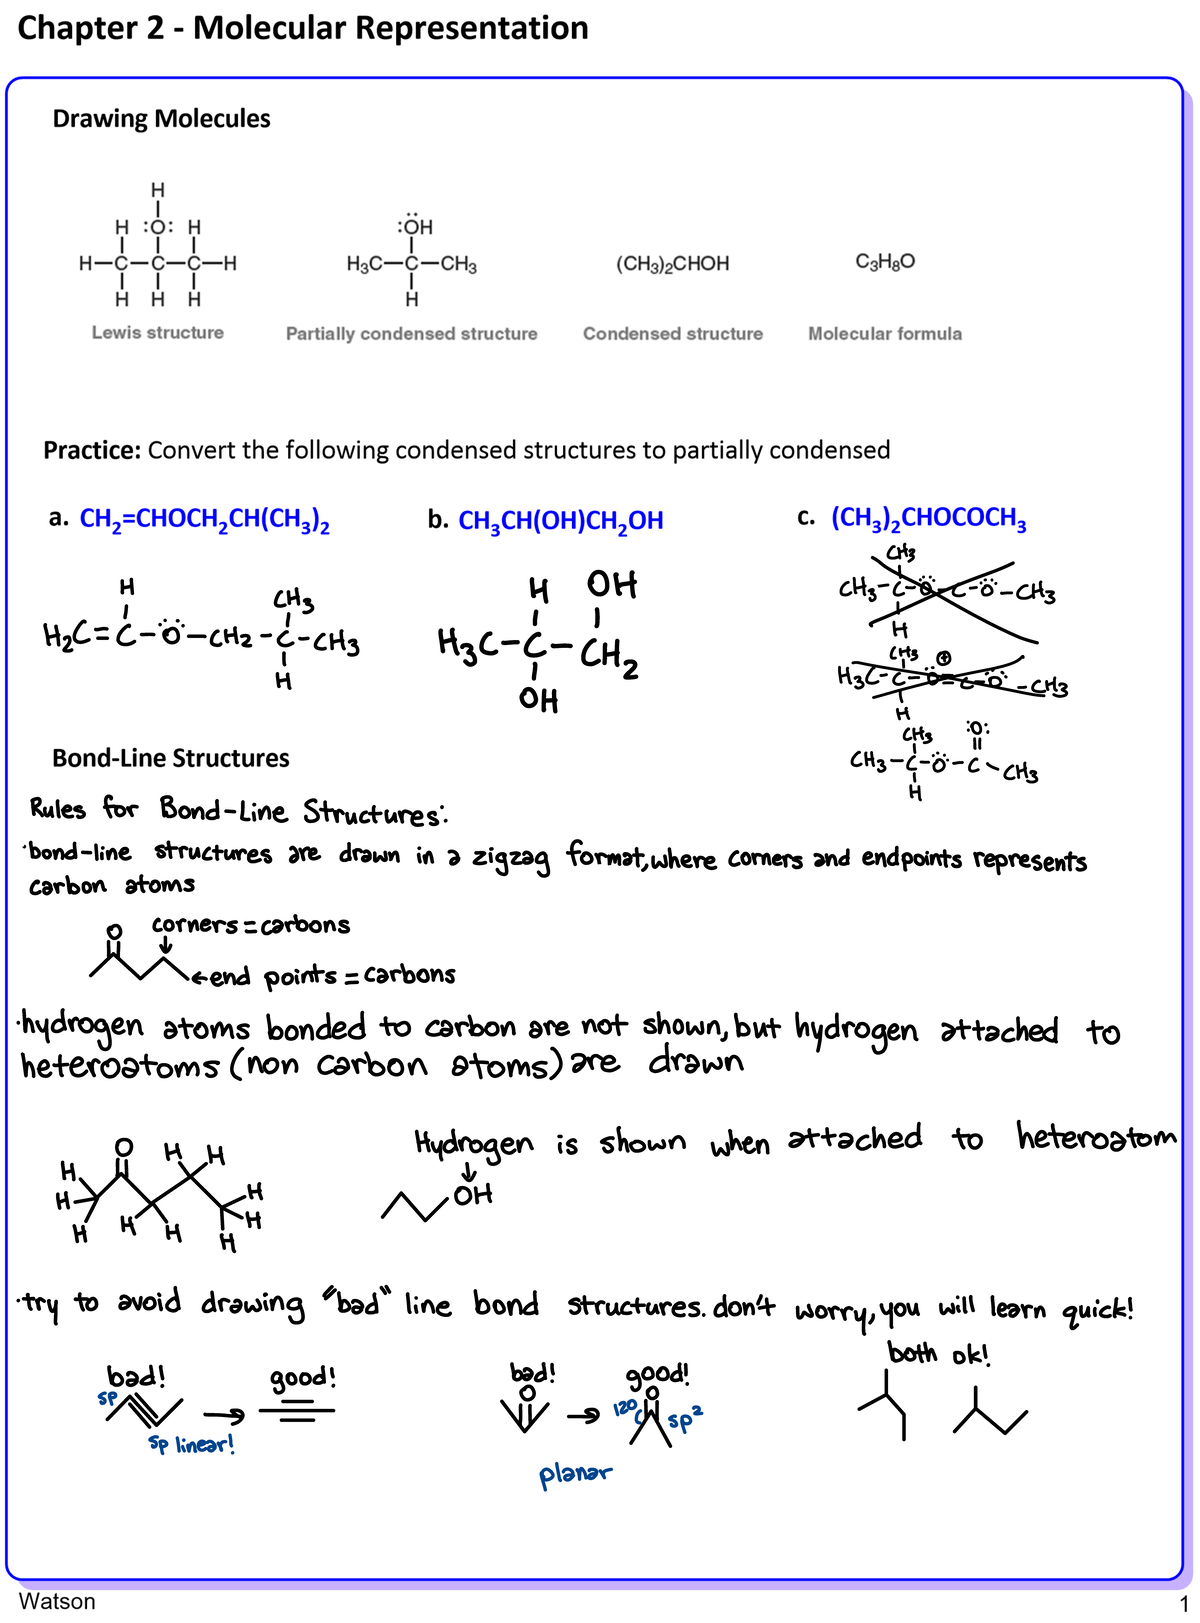 Chapter 2 - Molecular Representation
Drawing Molecules
H
H :Ö: H
H–C–C–C–H
H H H
Lewis structure
:ÖH
H₃C–C–CH₃
H
Partially condensed structure
(CH₃)₂CHOH
Condensed structure
C₃H₈O
Molecular formula
Practice: Convert the following condensed structures to partially condensed
a. CH₂=CHOCH₂CH(CH₃)₂
b. CH₃CH(OH)CH₂OH
c. (CH₃)₂CHOCOCH₃
H
CH₃
H₂C=C–Ö–CH₂–C–CH₃
H
H OH
H₃C–C–CH₂
OH
CH₃
CH₃–C–Ö–C–Ö–CH₃
H
CH₃ ⊕
H₃C–C–O=C–O–CH₃
H
CH₃ :O:
CH₃–C–Ö–C–CH₃
H
Bond-Line Structures
Rules for Bond-Line Structures:
·bond-line structures are drawn in a zigzag format, where corners and endpoints represents
carbon atoms
O corners = carbons
↓
←end points = carbons
·hydrogen atoms bonded to carbon are not shown, but hydrogen attached to
heteroatoms (non carbon atoms) are drawn
O H H
H H
H H
H H H H
Hydrogen is shown when attached to heteroatom
↓
OH
·try to avoid drawing "bad" line bond structures. don't worry, you will learn quick!
bad! → good!
sp
sp linear!
bad! → good!
O O
120 sp²
planar
both ok!
Watson
1